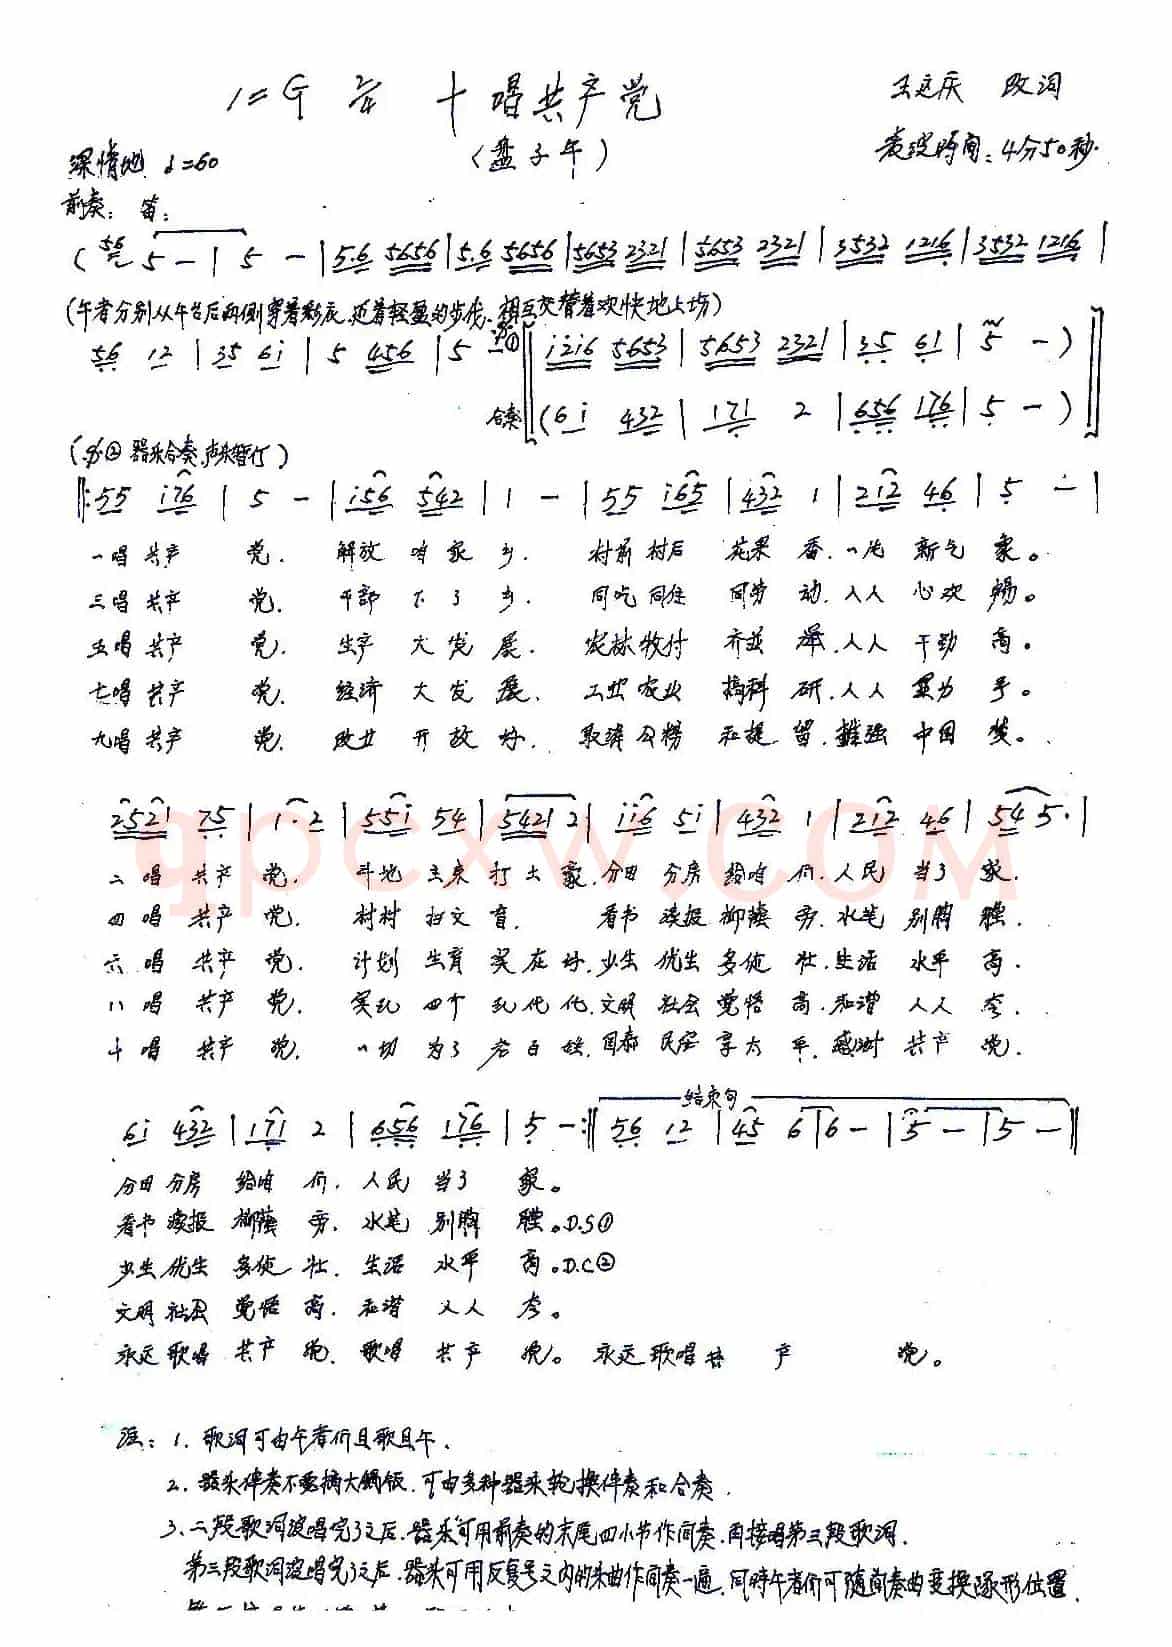 1=G 2/4 十唱共产党 王廷庆 改词
(盘子午)
深情地 ♩=60 表演时间：4分50秒.
前奏：笛：
( 56 5 - | 5 - | 5.6 5656 | 5.6 5656 | 5653 2321 | 5653 2321 | 3532 1216 | 3532 1216 |
(午者分别从午台后两侧穿着彩衣,迈着轻盈的步伐,相互交替着欢快地上场)
56 12 | 35 6i | 5 456 | 5 - ① i2i6 5653 | 5653 2321 | 35 61 | 5 - )
合奏 (6i 432 | 171 2 | 656 176 | 5 - )
(② 器乐合奏,声乐暂停)
‖: 55 i76 | 5 - | i56 542 | 1 - | 55 i65 | 432 1 | 212 46 | 5 - |
一唱共产 党. 解放 咱家 乡. 村前村后 花果 香.一片 新气 象。
三唱共产 党. 干部 下了 乡. 同吃同住 同劳 动.人人 心欢 畅。
五唱共产 党. 生产 大发 展. 农林牧付 齐并 举.人人 干劲 高。
七唱共产 党. 经济 大发 展. 工业农业 搞科 研.人人 显力 手。
九唱共产 党. 改革 开放 好. 取消公粮 和提 留. 中国 梦。
2521 75 | 1.2 | 55i 54 | 5421 2 | ii6 5i | 432 1 | 212 46 | 54 5. |
二唱 共产 党. 斗地 主来 打土 豪.分田 分房 给咱 们.人民 当了 家.
四唱 共产 党. 村村 扫文 盲. 看书 读报 柳荫 旁.水笔 别胸 膛.
六唱 共产 党. 计划 生育 实在 好.少生 优生 多健 壮.生活 水平 高.
八唱 共产 党. 实现 四个 现代 化.文明 社会 觉悟 高.和谐 人人 夸.
十唱 共产 党. 一切 为了 老百 姓.国泰 民安 享太 平.感谢 共产 党.
结束句
6i 432 | 171 2 | 656 176 | 5 - :‖ 56 12 | 45 6 | 6 - | 5 - | 5 - ‖
分田 分房 给咱 们. 人民 当了 家。
看书 读报 柳荫 旁. 水笔 别胸 膛。D.S①
少生 优生 多健 壮. 生活 水平 高。D.C②
文明 社会 觉悟 高. 和谐 人人 夸。
永远 歌唱 共产 党. 歌唱 共产 党。 永远 歌唱 共 产 党。
注：1. 歌词可由午者们且歌且午.
2. 器乐伴奏不要搞大锅饭.可由多种器乐轮换伴奏和合奏.
3. 二段歌词演唱完了之后.器乐可用前奏的末尾四小节作间奏.再接唱第三段歌词.
第三段歌词演唱完了之后.器乐可用反复号之内的乐曲作间奏一遍.同时午者们可随间奏曲变换队形位置.
qpcxw.COM